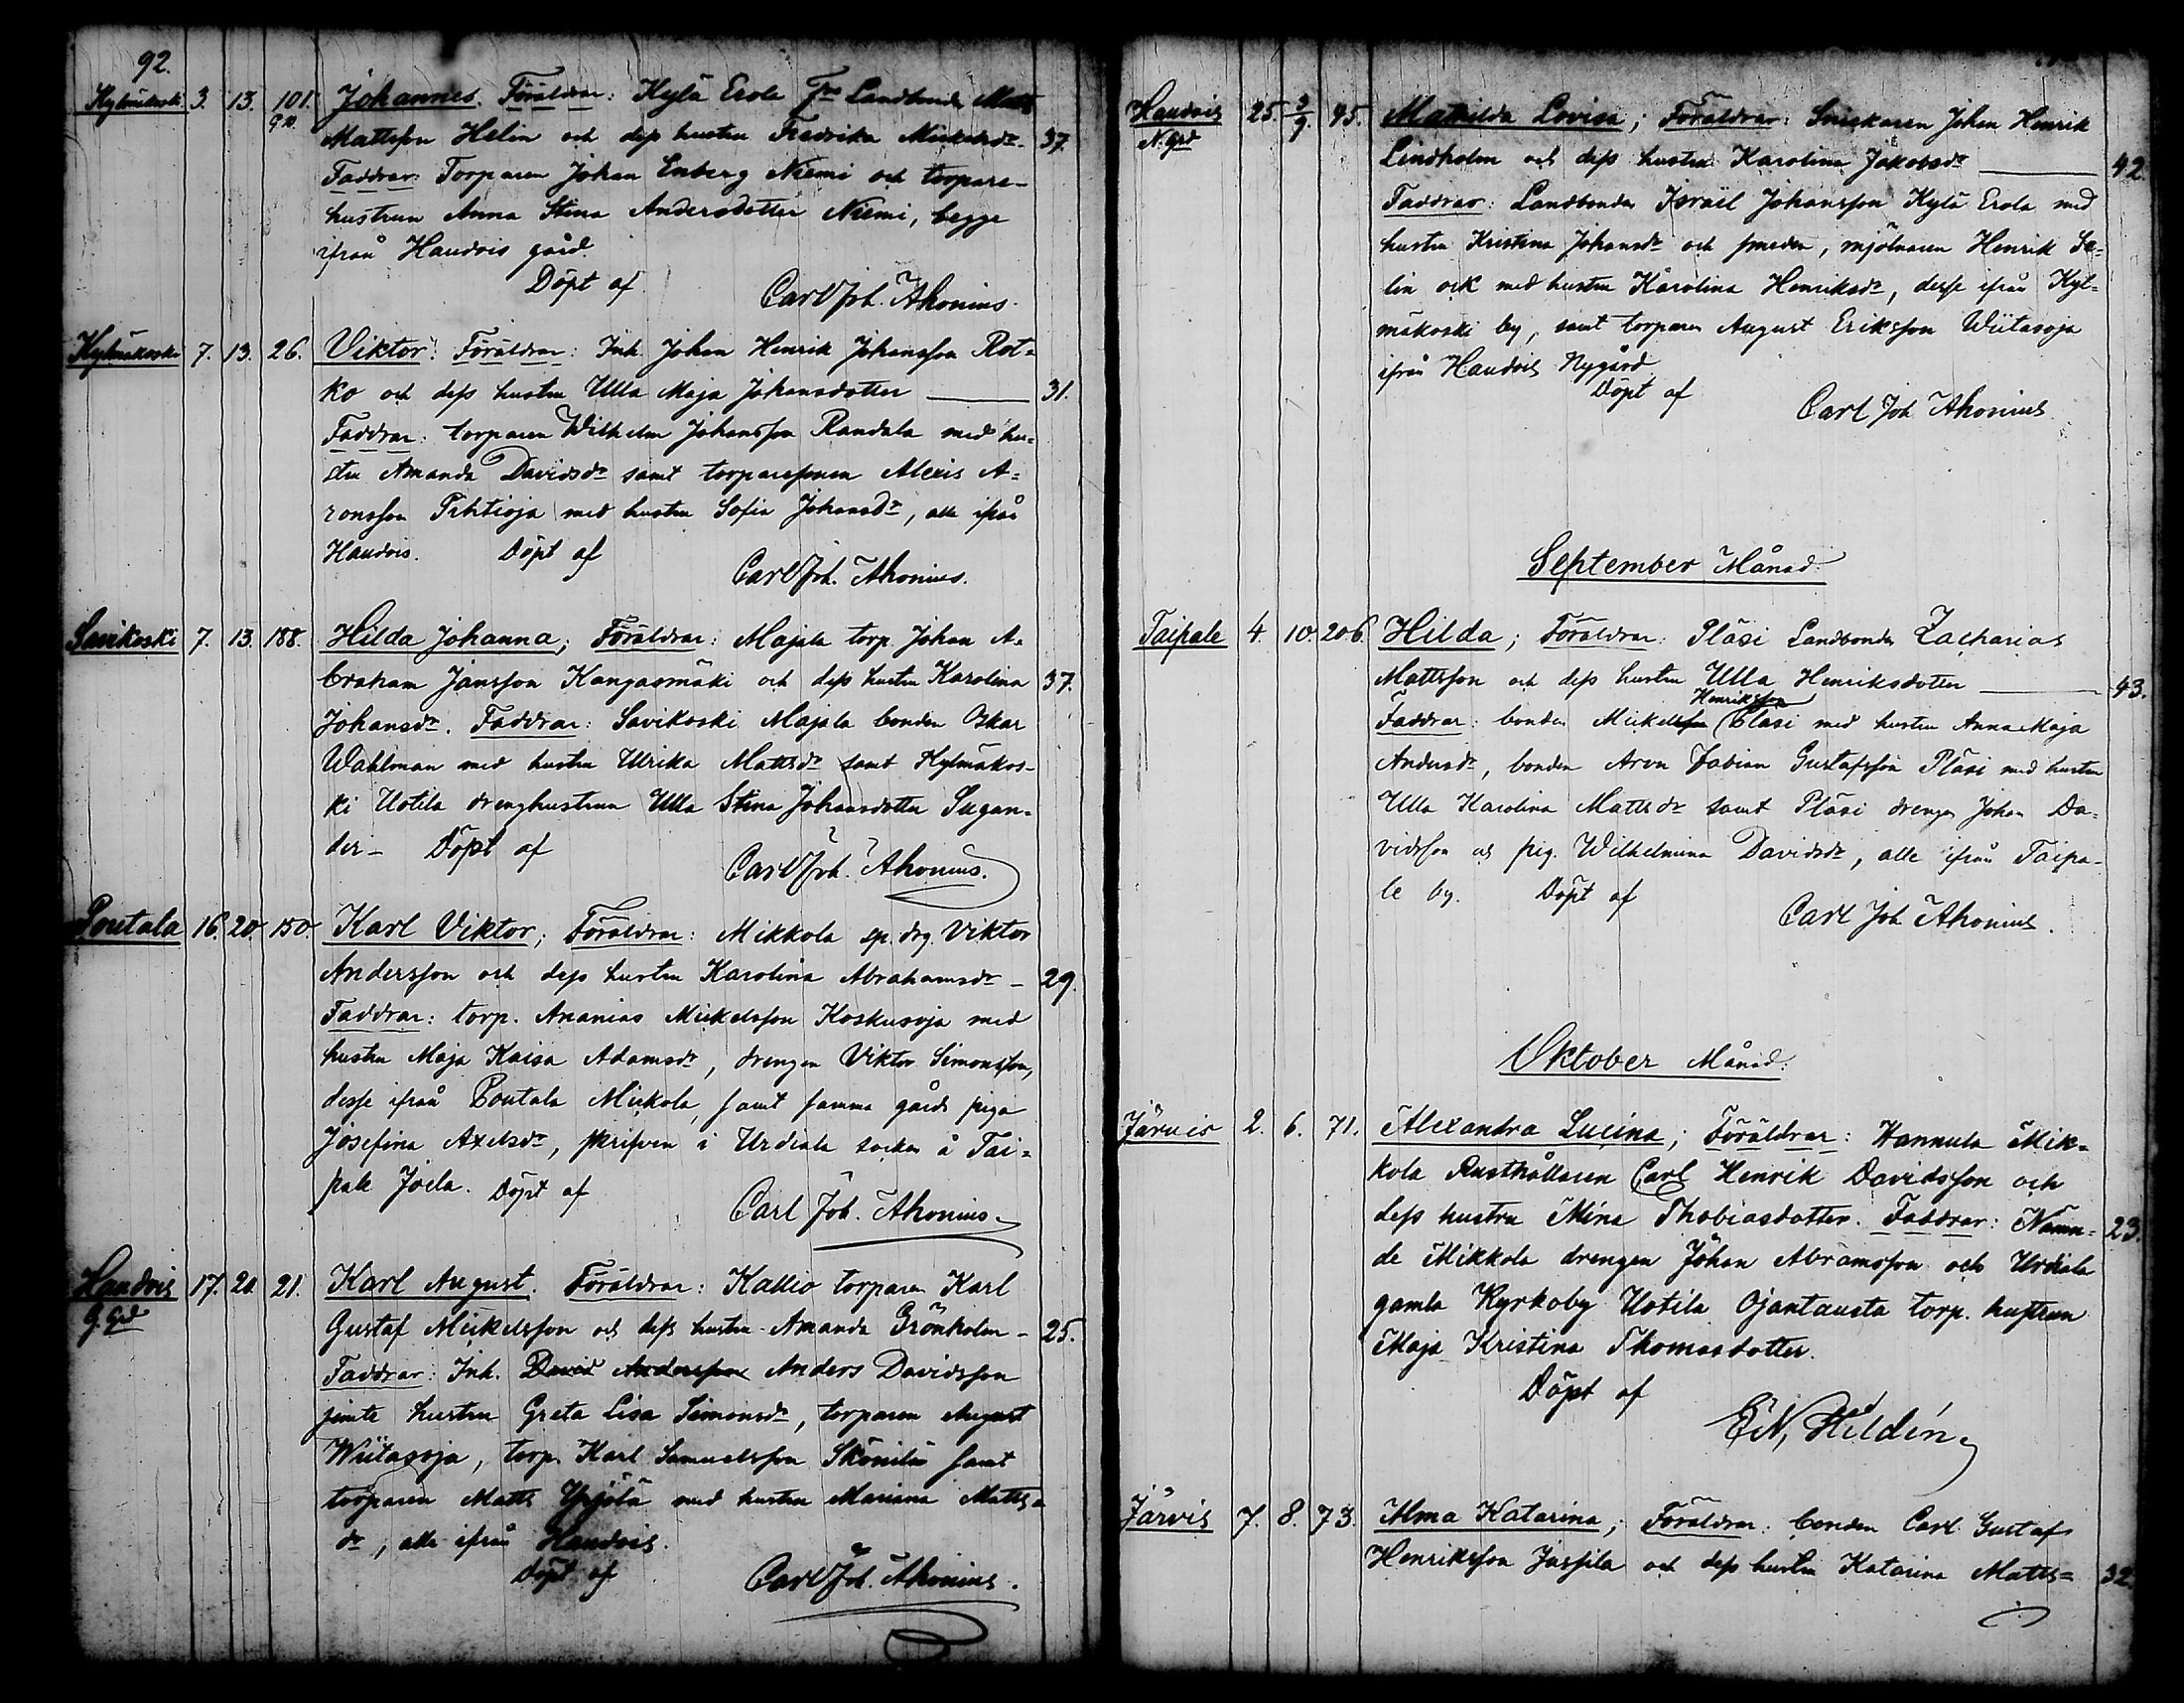 92.
Kylmäkoski 3. 13. 101. Johannes. Föräldrar: Kylä Erola Landbonde Matts
Mattsson Helin och dess hustru Fredrika Mickelsdr. 37.
Faddrar: Torparen Johan Enberg Niemi och torpare-
hustrun Anna Stina Andersdotter Niemi, begge
ifrån Haudois gård.
Döpt af
Carl Joh. Ahonius.
Kylmäkoski 7. 13. 26. Viktor: Föräldrar: Inh. Johan Henrik Johansson Rot=
ko och dess hustru Ulla Maja Johansdotter 31.
Faddrar: torparen Wilhelm Johansson Randala med hu=
stru Amanda Davidsdr samt torparesonen Alexis A=
ronsson med hustru Sofia Johansdr, alla ifrån
Haudois. Döpt af
Carl Joh. Ahonius.
Savikoski 7. 13. 188. Hilda Johanna; Föräldrar: Majala torp. Johan A=
braham Jansson Kangasmäki och dess hustru Karolina 37.
Johansdr. Faddrar: Savikoski Majala bonden Oskar
Wahlman med hustru Ulrika Mattsdr samt Kylmäkos-
ki Uotila drenghustrun Ulla Stina Johansdotter Sugan=
der - Döpt af
Carl Joh. Ahonius.
Pontala 16. 20. 150. Karl Viktor; Föräldrar: Mikkola sp. drg. Viktor
Andersson och dess hustru Karolina Abrahamsdr - 29.
Faddrar: torp. Ananias Mickelsson Koskusoja med
hustru Maja Kaisa Adamsdr, drengen Viktor Simonsson,
desse ifrån Pontala Mickola, samt samma gårds piga
Josefina Axelsdr, skrifven i Urdiala socken å Tai=
pale Joela. Döpt af
Carl Joh. Ahonius
Haudois 17. 20. 21. Karl August. Föräldrar: Kallio torparen Karl
G. Grd
Gustaf Mickelsson och dess hustru Amanda Grönholm - 25.
Faddrar: Inh. David Andersson Anders Davidsson
jemte hustru Greta Lisa Simonsdr, torparen August
Wiitasoja, torp. Karl Samuelsson samt
torparen Matts Ypöjä med hustru Mariana Matts=
dr, alla ifrån Haudois.
Döpt af
Carl Joh. Ahonius.
Haudois 25. 3/9. 95. Mathilda Lovisa; Föräldrar: Snickaren Johan Henrik
N. Grd
Lindholm och dess hustru Karolina Jakobsdr 42.
Faddrar: Landbonden Israël Johansson Kylä Erola med
hustru Kristina Johansdr och smeden, mjölnaren Henrik Se=
lin ock med hustru Karolina Henriksdr, desse ifrån Kyl=
mäkoski by, samt torparen August Eriksson Wiitasoja
ifrån Haudois Nygård
Döpt af
Carl Joh Ahonius
September Månad.
Taipale 4. 10. 206. Hilda; Föräldrar: Pläsi Landbonden Zacharias
Mattsson och dess hustru Ulla Henriksdotter 43.
Henriksson
Faddrar: bonden Mickelsson Pläsi med hustru Anna Maja
Andersdr, bonden Arvn Fabian Gustafsson Pläsi med hustru
Ulla Karolina Mattsdr samt Pläsi drengen Johan Da=
vidsson och pig. Wilhelmina Davidsdr, alla ifrån Taipa-
le by. Döpt af
Carl Joh Ahonius.
Oktober Månad.
Järvis 2. 6. 71. Alexandra Lucina; Föräldrar: Hannula Mik=
kola Rusthållaren Carl Henrik Davidsson och
dess hustru Mina Thobiasdotter. Faddrar: Nämn= 23.
de Mikkola drengen Johan Abramsson och Urdiala
gamla Kyrkoby Uotila Ojantausta torp. hustrun
Maja Kristina Thomasdotter.
Döpt af
E.N. Hildén
Järvis 7. 8. 73. Alma Katarina; Föräldrar: bonden Carl Gustaf
Henriksson Jussila och dess hustru Katarina Matts= 32.